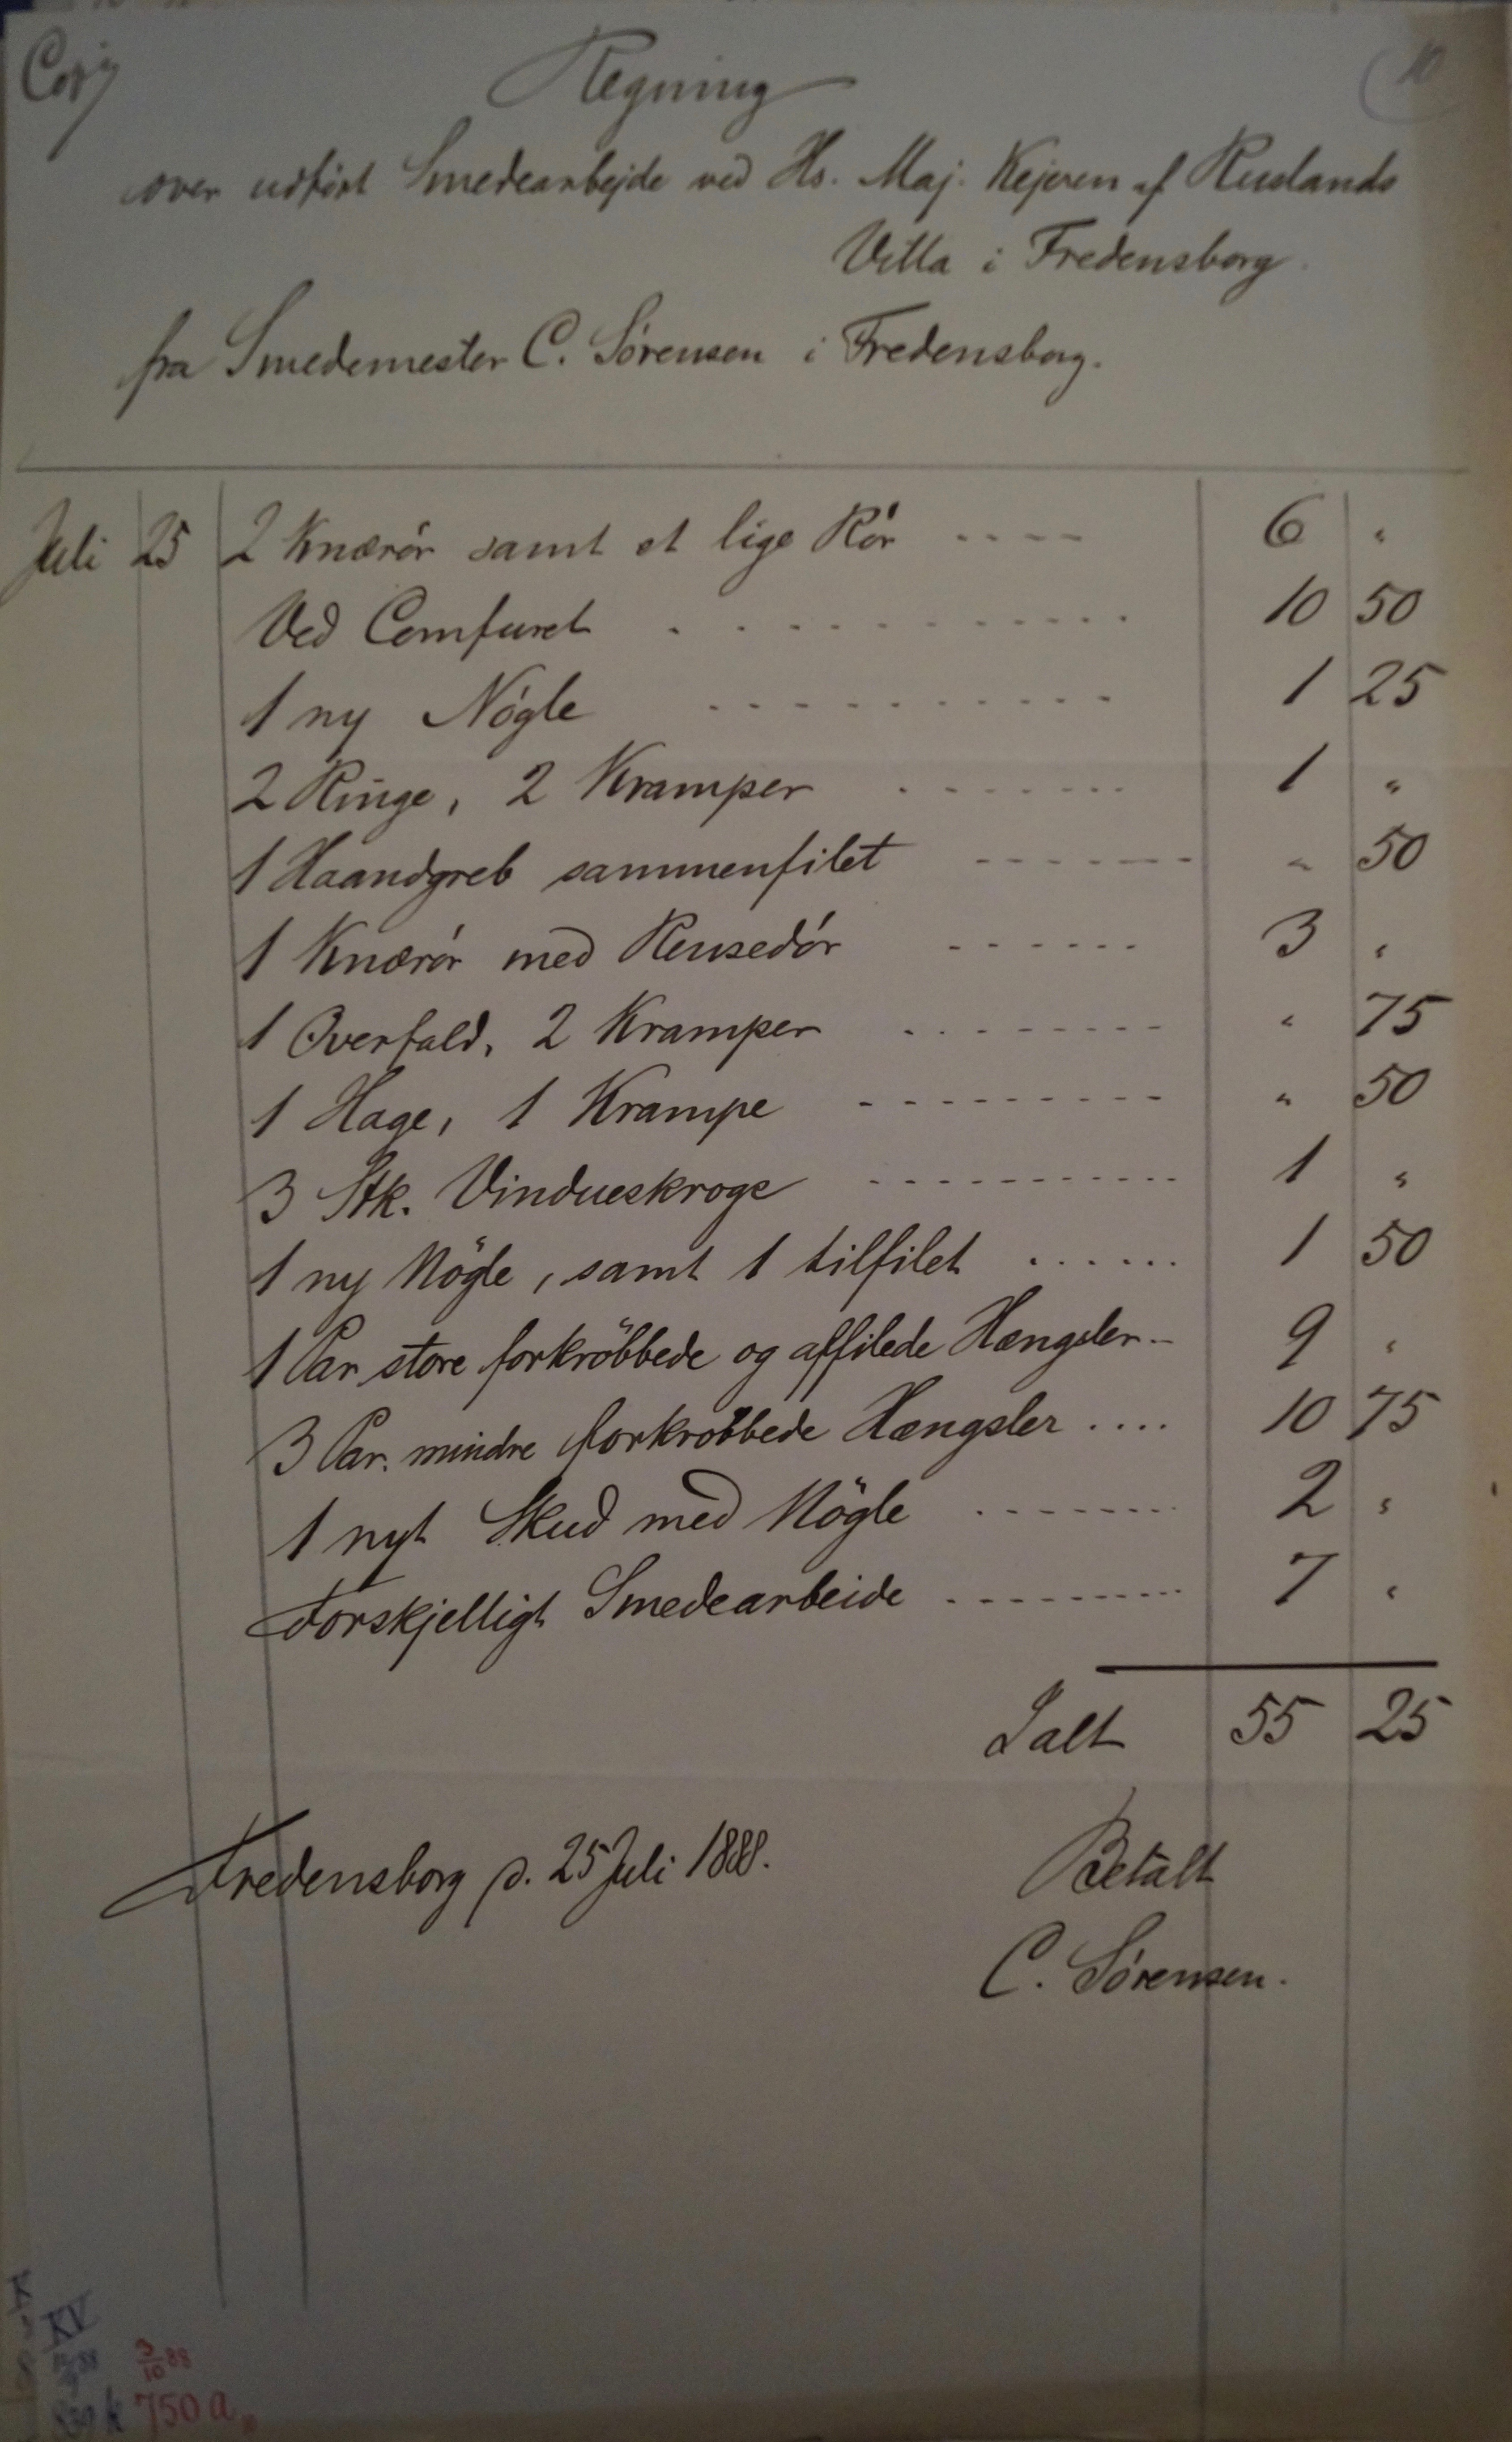 Copj
10
Regning
over udført Smedearbejde ved Hs. Maj. Kejseren af Ruslands
Villa i Fredensborg.
fra Smedemester C. Sörensen i Fredensborg.
Juli 25 2 Knærör samt et lige Rör .... 6 "
Ved Comfuret . . . . . . . . . . . 10 50
1 ny Nögle . . . . . . . . . . 1 25
2 Ringe, 2 Kramper . . . . . . . 1 "
1 Haandgreb sammenfilet - - - - - - - " 50
1 Knærör med Rensedör - - - - - - 3 "
1 Overfald, 2 Kramper - - - - - - - - " 75
1 Hage, 1 Krampe - - - - - - - - - " 50
3 Stk. Vindueskroge - - - - - - - - - - 1 "
1 ny Nögle, samt 1 tilfilet . . . . . . 1 50
1 Par store forkröbbede og affilede Hængsler - 9 "
3 Par. mindre forkröbbede Hængsler .... 10 75
1 nyt Skud med Nögle - - - - - - - 2 "
Forskjelligt Smedearbeide - - - - - - - - - 7 "
Ialt 55 25
Fredensborg d. 25 Juli 1888.
Betalt
C. Sörensen.
KV
3/10 88
750 a.